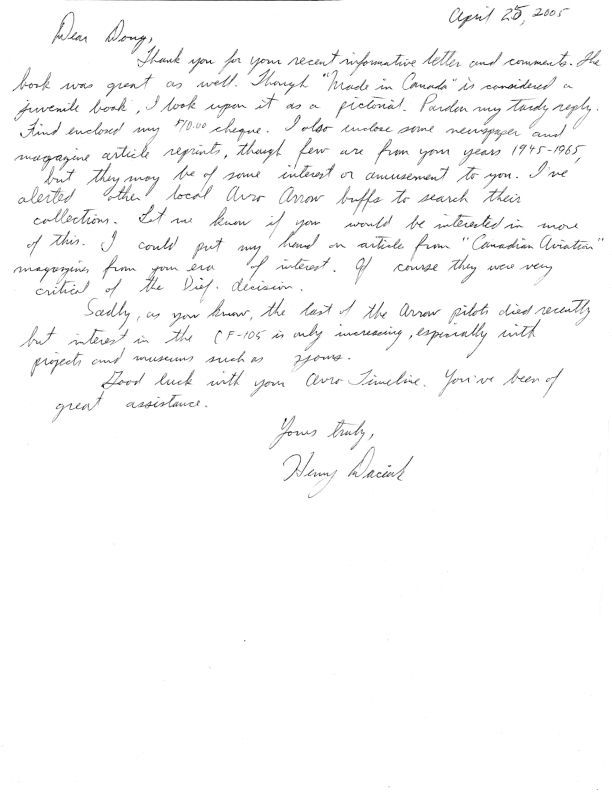 April 25, 2005
Dear Doug,
Thank you for your recent informative letter and comments. The
book was great as well. Though "Made in Canada" is considered a
juvenile book, I look upon it as a pictorial. Pardon my tardy reply.
Find enclosed my $10.00 cheque. I also enclose some newspaper and
magazine article reprints, though few are from your years 1945-1965,
but they may be of some interest or amusement to you. I've
alerted other local Avro Arrow buffs to search their
collections. Let me know if you would be interested in more
of this. I could put my hand on article from "Canadian Aviation"
magazines from your era of interest. Of course they were very
critical of the Dief. decision.
Sadly, as you know, the last of the Arrow pilots died recently
but interest in the CF-105 is only increasing, especially with
projects and museums such as yours.
Good luck with your Avro Timeline. You've been of
great assistance.
Yours truly,
Henry